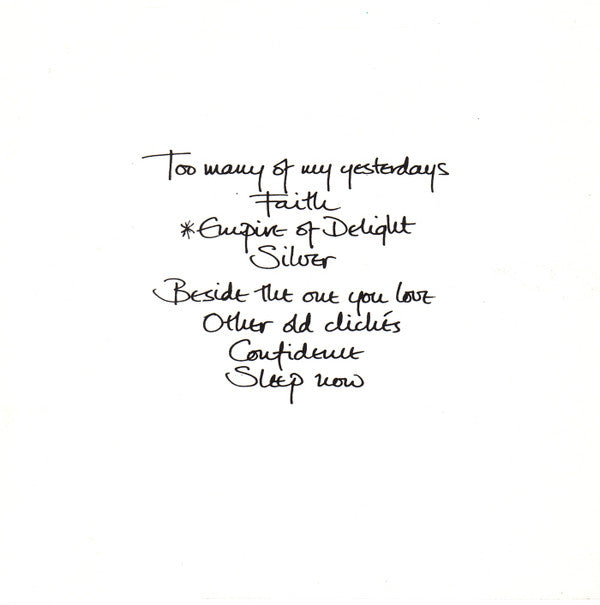 Too many of my yesterdays
Faith
*Empire of Delight
Silver
Beside the one you love
Other old clichés
Confidence
Sleep now